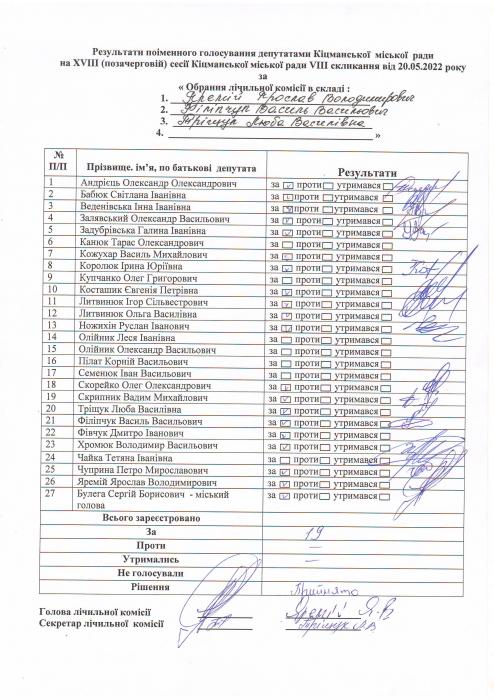 Результати поіменного голосування депутатами Кіцманської міської ради
на XVIII (позачерговій) сесії Кіцманської міської ради VIII скликання від 20.05.2022 року
за
« Обрання лічильної комісії в складі :
1. Яремій Ярослав Володимирович
2. Філіпчук Василь Васильович
3. Тріщук Люба Василівна
4. »
№ П/П Прізвище. ім’я, по батькові депутата Результати
1 Андрієць Олександр Олександрович за ✓ проти утримався
2 Бабюк Світлана Іванівна за ✓ проти утримався
3 Веденівська Інна Іванівна за ✓ проти утримався
4 Залявський Олександр Васильович за ✓ проти утримався
5 Задубрівська Галина Іванівна за ✓ проти утримався
6 Канюк Тарас Олександрович за проти утримався
7 Кожухар Василь Михайлович за ✓ проти утримався
8 Королюк Ірина Юріївна за ✓ проти утримався
9 Купчанко Олег Григорович за проти утримався
10 Косташик Євгенія Петрівна за ✓ проти утримався
11 Литвинюк Ігор Сільвестрович за ✓ проти утримався
12 Литвинюк Ольга Василівна за ✓ проти утримався
13 Ножихін Руслан Іванович за ✓ проти утримався
14 Олійник Леся Іванівна за проти утримався
15 Олійник Олександр Васильович за проти утримався
16 Пілат Корній Васильович за проти утримався
17 Семенюк Іван Васильович за проти утримався
18 Скорейко Олег Олександрович за ✓ проти утримався
19 Скрипник Вадим Михайлович за ✓ проти утримався
20 Тріщук Люба Василівна за ✓ проти утримався
21 Філіпчук Василь Васильович за ✓ проти утримався
22 Фівчук Дмитро Іванович за ✓ проти утримався
23 Хромюк Володимир Васильович за ✓ проти утримався
24 Чайка Тетяна Іванівна за проти утримався
25 Чуприна Петро Мирославович за ✓ проти утримався
26 Яремій Ярослав Володимирович за ✓ проти утримався
27 Булега Сергій Борисович - міський за ✓ проти утримався
голова
Всього зареєстровано
За 19
Проти —
Утримались —
Не голосували
Рішення Прийнято
Голова лічильної комісії Яремій Я.В
Секретар лічильної комісії Тріщук Л.В